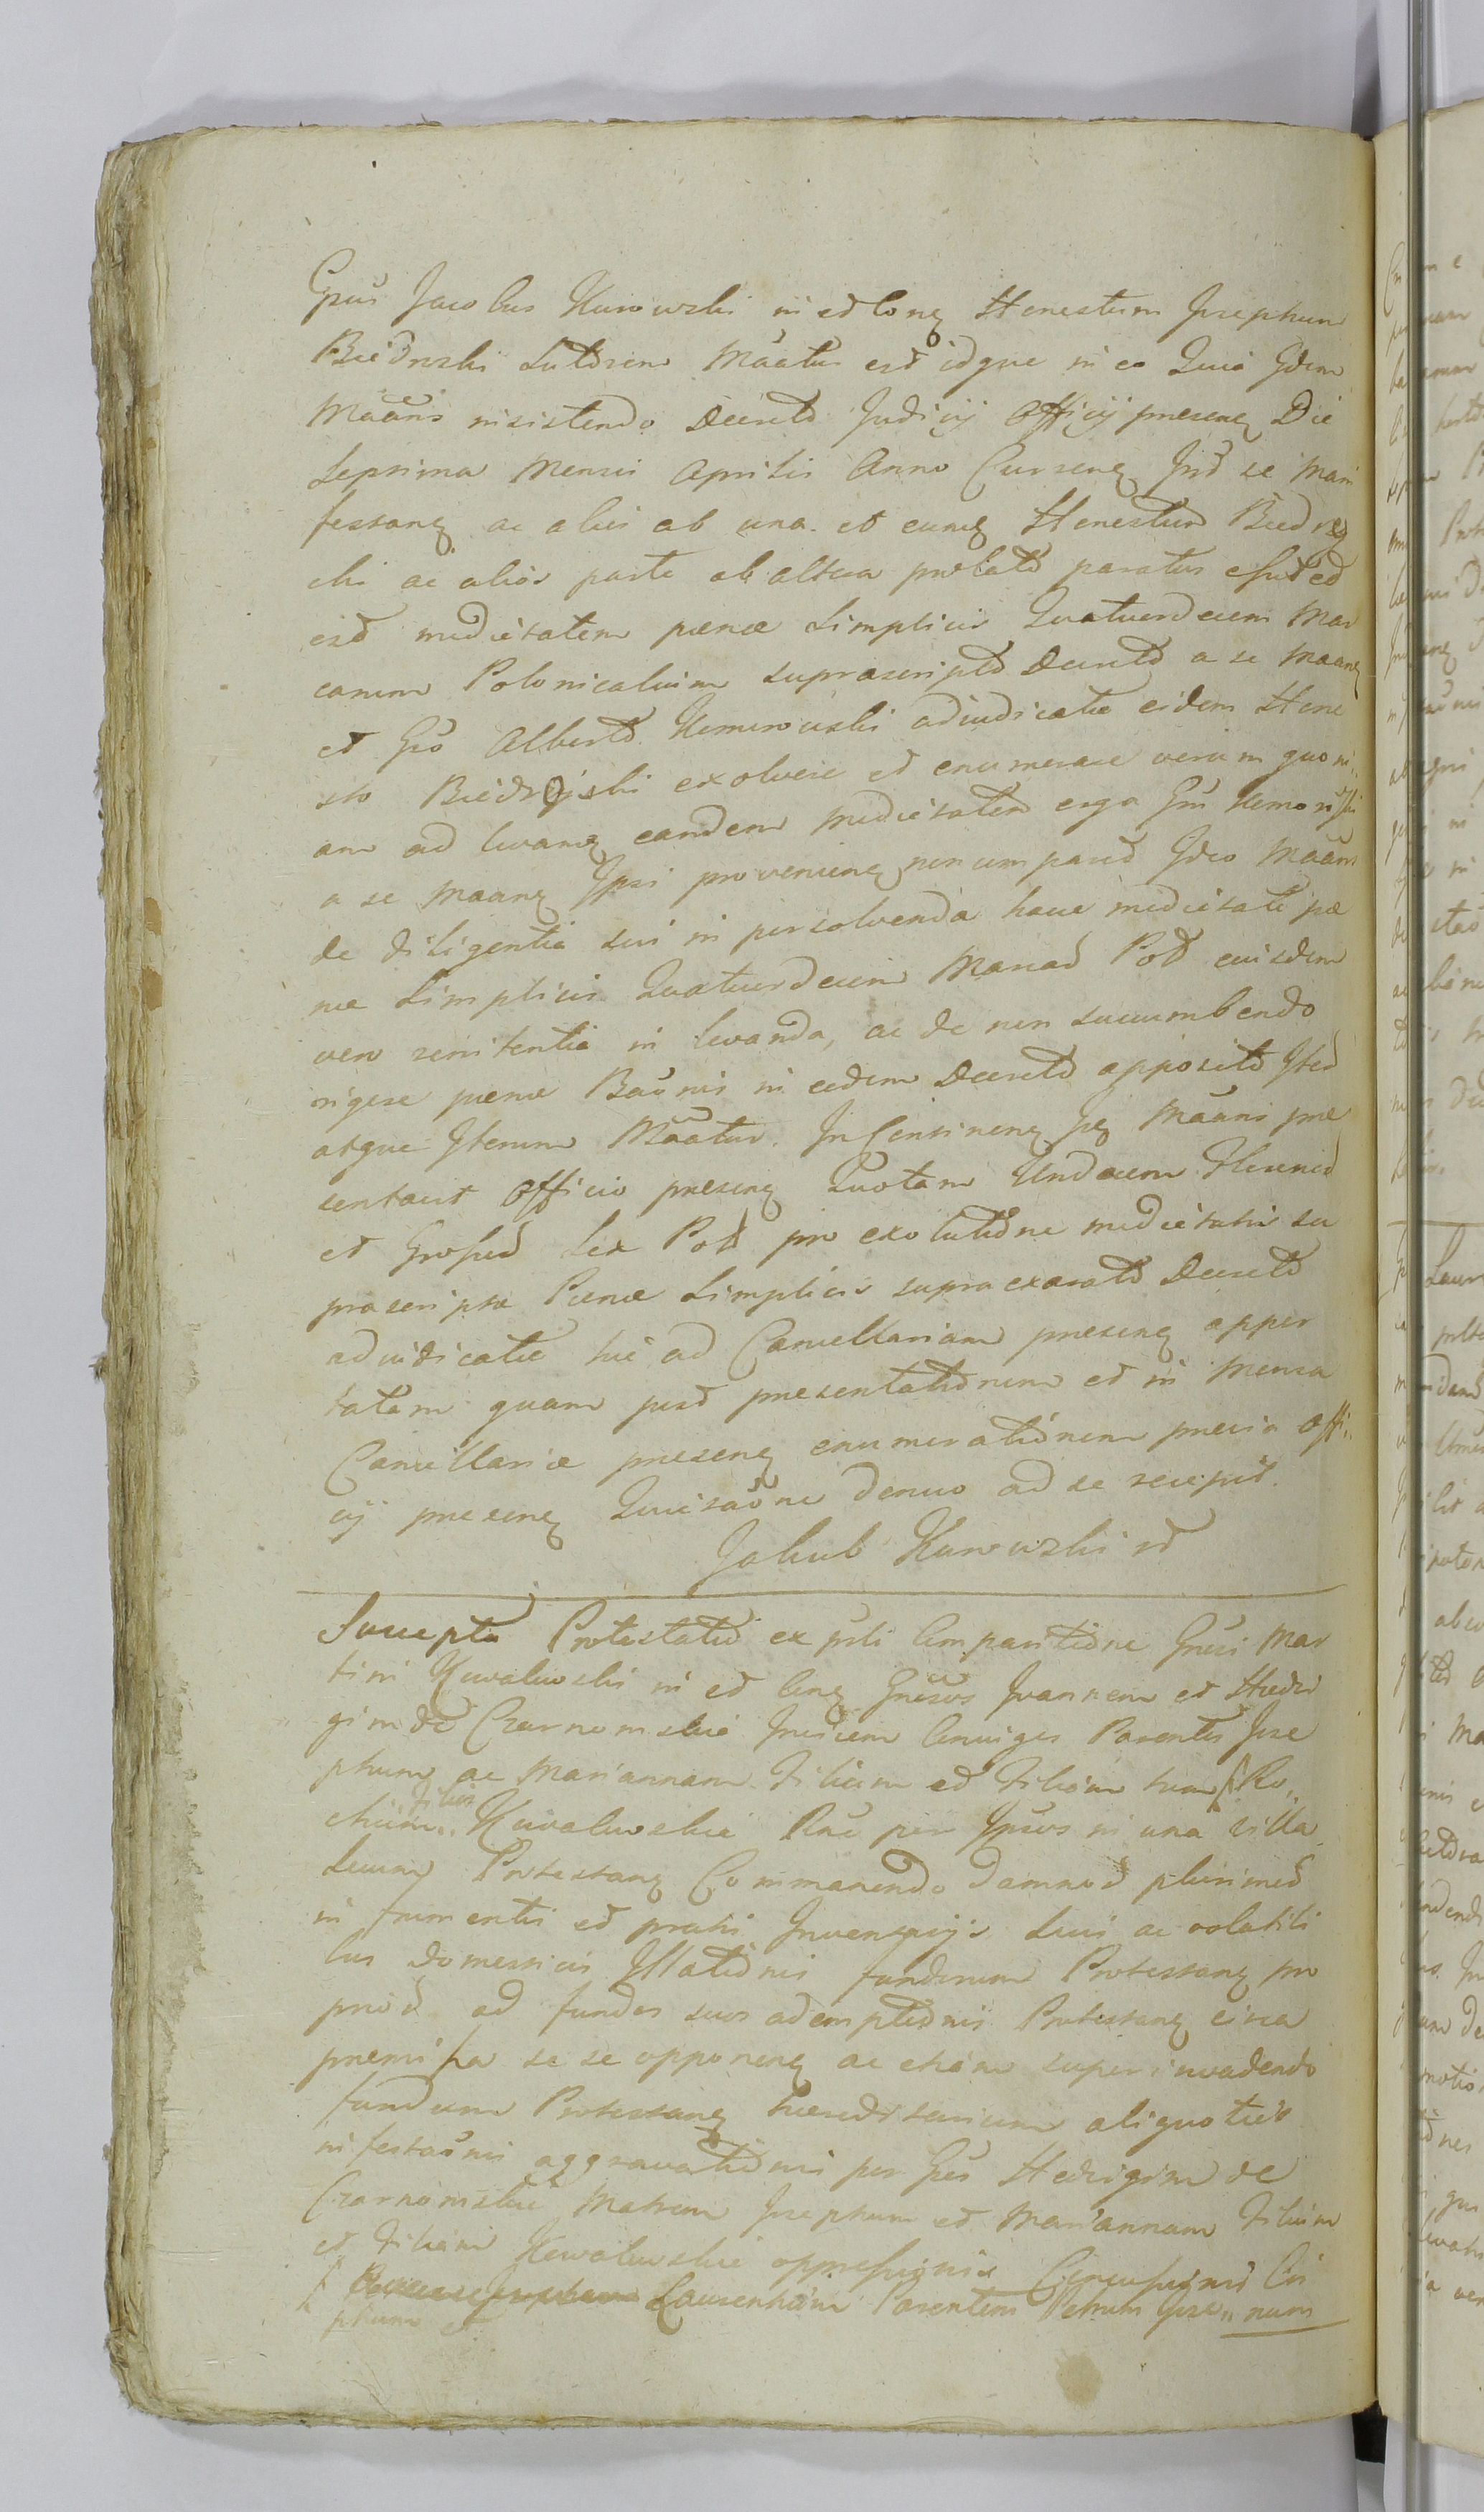 Gsus Jacobus Kurowski in et cong Honestum Josephum
Biedrzki Sutorem Maatus est idque in eo Quia Idem
Maans insistendo Decreto Judicij Officij presens Die
Septima Mensis Aprilis Anno Currens Int se Mani
festans ac alios ab una et eundem Honestum Biedrzy
cki ac alios parte ab altera prolato paratus esset
est medietatem pænæ Simplicis Quatuordecim Mar
carum Polonicalium suprascripto Decreto a se Maan
et Gso Alberto Komorowski adiudicatæ eidem Hone
sto Biedrzyski exolvere et enumerare verum quoni
am ad levan eandem medietatem erga Gsi Komorowski
a se Maan Ipsi provenien non comparet Ideo Maans
de diligentia sui in persolvenda hacce medietate pæ
næ Simplicis Quatuordecim Marcar Pol eiusdem
vero renitentia in levanda, ac de non succumbendo
rigere pænæ Baonis in eodem Decreto apposito Iter
atque Iterum Maatur. In continen Is Maans præ
sentavit Officio presens Quotam Undecim Florenor
et Grossor Sex Pol pro exolutione medietatis su
prascriptæ Pænæ Simplicis supraexarato Decreto
adiudicatæ hic ad Cancellariam presens appor
tatam quam post presentationem et in Mensa
Cancellariæ presens enumerationem previa Offi
cij presens Quietaone denuo ad se recepit.
Jakub Kurowski
Suscepta Protestatio ex prli Comparitione Gnsi Mar
tini Kowalewski in et cong Gnsos Joannem et Hedvi
gim de Czarnomskie Invicem Coniuges Parentes Jose
phum ac Mariannam Filium et Filiam tum Ro
chum Filios Kowalewskie Rne per Ipsos in una Villa
Secum Protestans Commanendo Damnor plurimor
in frumentis et pratis Inventarijs Suis ac volatili
bus domesticis Illationis fundorum Protestans pro
prior ad fundos suos ademptionis Protestans circa
premissa se se opponens ac etiam superinvadendo
fundum Protestans hæreditarium aliquoties
infestaonis aggravationis per Gsos Hedvigim de
Czarnomskie Matrem Josephum et Mariannam Filium
et Filiam Kowalewskie oppressionis Concussionis Cri
Laurentium Parentem Petrum Jose num
phum et